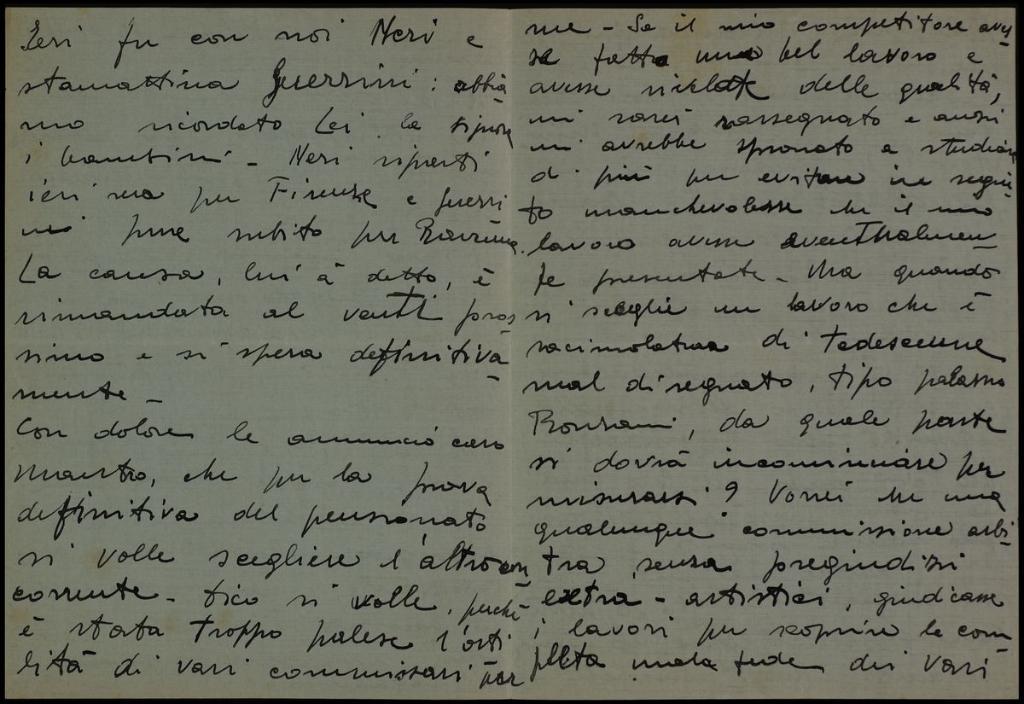 Ieri fu con noi Neri e
stamattina Guerrini: abbia
mo ricordato Lei, la signora
i bambini - Neri ripartì
ieri sera per Firenze e Guerri
ni pure subito per Ravenna.
La causa, lui à detto, è
rimandata al venti pros
simo e si spera definitiva
mente -
Con dolore le annunciò caro
Maestro, che per la prova
definitiva del pensionato
si volle scegliere l'altro con
corrente - Dico si volle, perchè
è stata troppo palese l'osti
lità di vari commissari per
me - Se il mio competitore aves
se fatto un bel lavoro e
avesse rivelate delle qualità,
mi sarei rassegnato e anzi
mi avrebbe spronato a studiare
di più per evitare in segui
to manchevolesse che il mio
lavoro avesse eventualmen
te presentate - Ma quando
si sceglie un lavoro che è
racimolatura di tedescume
mal disegnato, tipo palazzo
Ronzani, da quale parte
si dovrà incominciare per
misurarsi? Vorrei che una
qualunque commissione arbi
tra, senza pregiudizi
extra-artistici, giudicasse
i lavori per scoprire la com
pleta mala fede dei vari